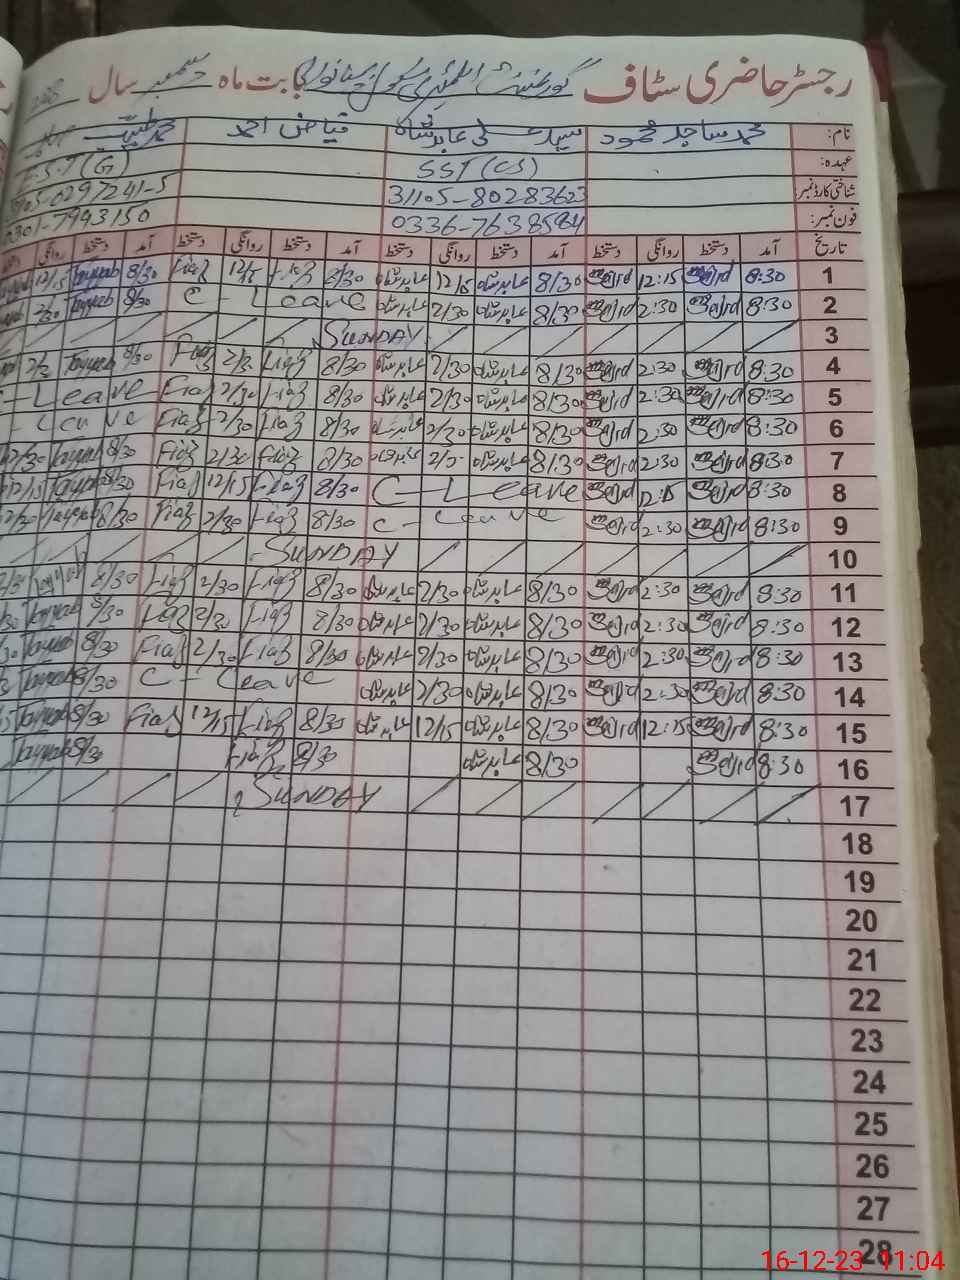 رجسٹر حاضری سٹاف گورنمنٹ ایلیمنٹری سکول بابت ماہ دسمبر سال
نام: محمد ساجد محمود سید علی عابد شاہ فیاض احمد محمد طیب
عہدہ: SST (CS) E.S.T (G)
شناختی کارڈ نمبر: 31105-80283623
فون نمبر: 0336-7638584 0301-7943150
تاریخ آمد دستخط روانگی دستخط آمد دستخط روانگی دستخط آمد دستخط روانگی دستخط آمد دستخط روانگی دستخط
1 8:30 Sajid 12:15 Sajid 8/30 عابد شاہ 12/15 عابد شاہ 8/30 Fiaz 12/15 Fiaz 8/30 Tayyab 12/15
2 8:30 Sajid 2:30 Sajid 8/30 عابد شاہ 2/30 عابد شاہ C-Leave 8/30 Tayyab 2/30
3 SUNDAY
4 8:30 Sajid 2:30 Sajid 8/30 عابد شاہ 2/30 عابد شاہ 8/30 Fiaz 2/30 Fiaz 8/30 Tayyab
5 8:30 Sajid 2:30 Sajid 8/30 عابد شاہ 2/30 عابد شاہ 8/30 Fiaz 2/30 Fiaz C-Leave
6 8:30 Sajid 2:30 Sajid 8/30 عابد شاہ 2/30 عابد شاہ 8/30 Fiaz 2/30 Fiaz C-Leave
7 8:30 Sajid 2:30 Sajid 8/30 عابد شاہ عابد شاہ 8/30 Fiaz 2/30 Fiaz 8/30 Tayyab 2/30
8 8:30 Sajid 12:15 Sajid C-Leave 8/30 Fiaz 12/15 Fiaz 8/30 Tayyab 12/15
9 8:30 Sajid 2:30 Sajid C-Leave 8/30 Fiaz 2/30 Fiaz 8/30 Tayyab 2/30
10 SUNDAY
11 8:30 Sajid 2:30 Sajid 8/30 عابد شاہ 2/30 عابد شاہ 8/30 Fiaz 2/30 Fiaz 8/30 Tayyab 2/30
12 8:30 Sajid 2:30 Sajid 8/30 عابد شاہ 2/30 عابد شاہ 8/30 Fiaz 2/30 Fiaz 8/30 Tayyab
13 8:30 Sajid 2:30 Sajid 8/30 عابد شاہ 2/30 عابد شاہ 8/30 Fiaz 2/30 Fiaz 8/30 Tayyab
14 8:30 Sajid 2:30 Sajid 8/30 عابد شاہ 2/30 عابد شاہ C-Leave 8/30 Tayyab
15 8:30 Sajid 12:15 Sajid 8/30 عابد شاہ 12/15 عابد شاہ 8/30 Fiaz 12/15 Fiaz 8/30 Tayyab
16 8:30 Sajid 8/30 عابد شاہ 8/30 Fiaz 8/30 Tayyab
17 SUNDAY
18
19
20
21
22
23
24
25
26
27
28
16-12-23 11:04